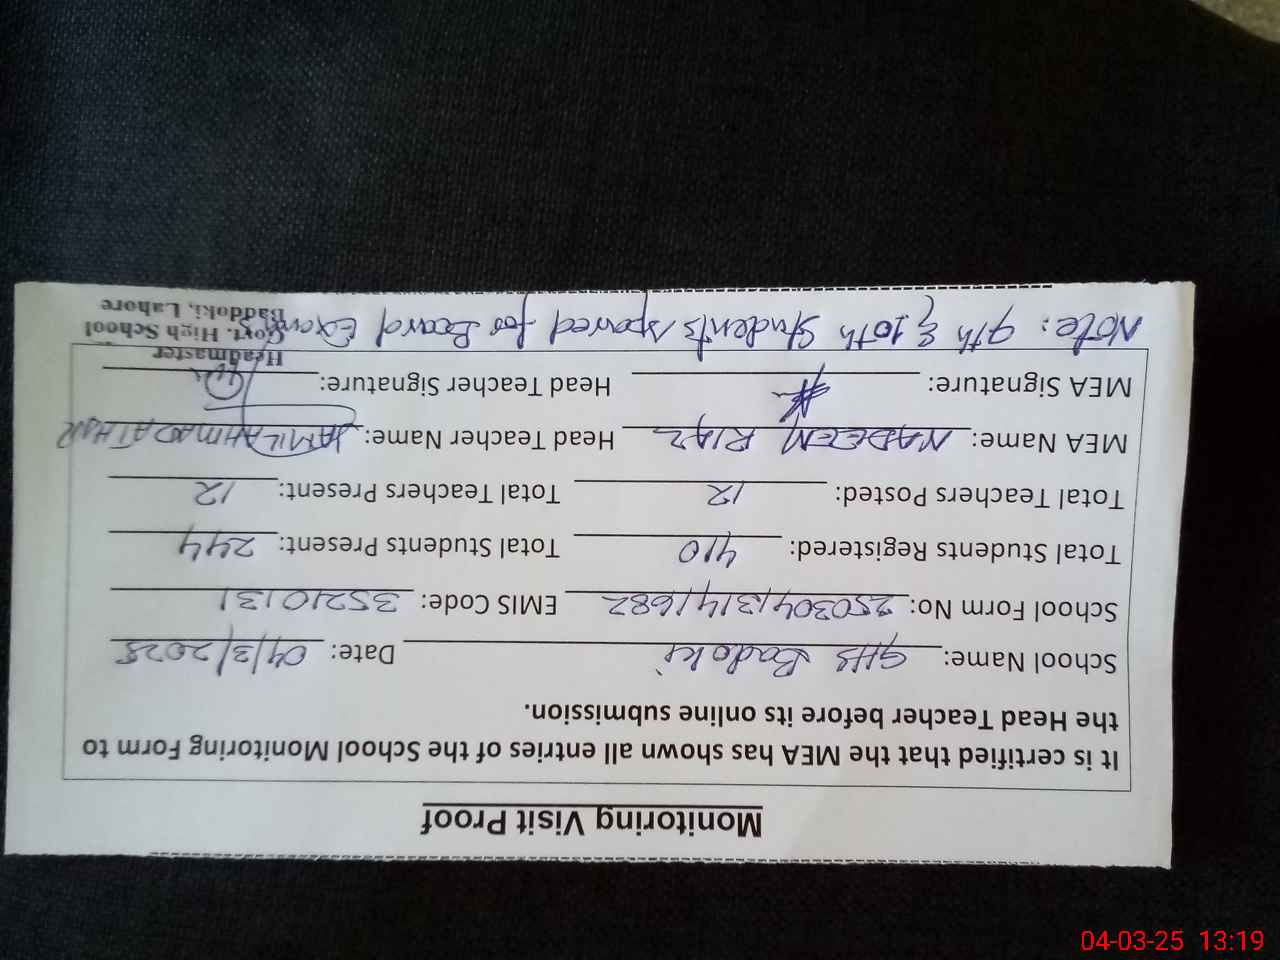 Monitoring Visit Proof
It is certified that the MEA has shown all entries of the School Monitoring Form to
the Head Teacher before its online submission.
School Name: GHS Badoki Date: 04/3/2025
School Form No: 250304131411682 EMIS Code: 35210131
Total Students Registered: 410 Total Students Present: 244
Total Teachers Posted: 12 Total Teachers Present: 12
MEA Name: NADEEM RIAZ Head Teacher Name: JAMIL AHMAD ATHAR
MEA Signature: Head Teacher Signature:
Headmaster
Govt. High School
Baddoki, Lahore
Note: 9th & 10th Students spared for Board Exam
04-03-25 13:19